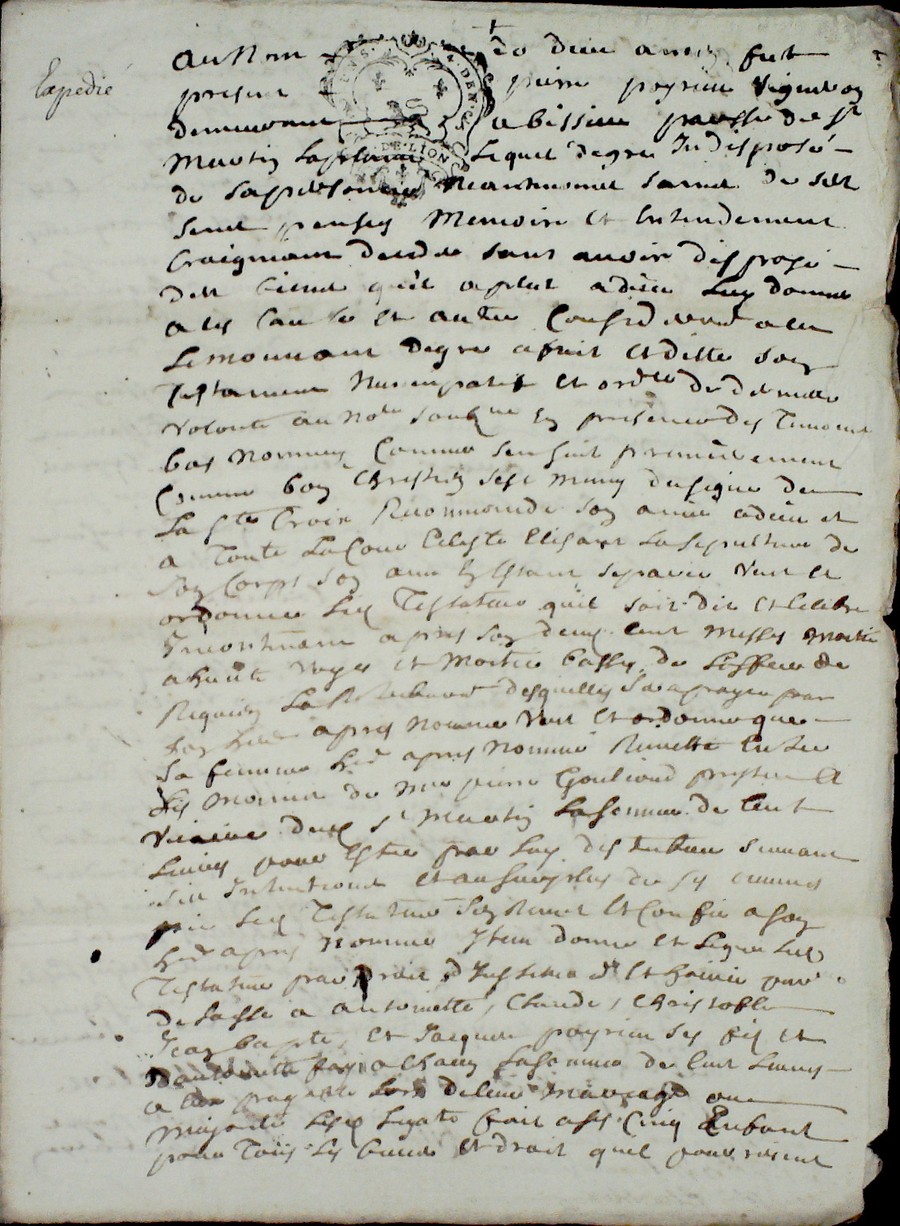 Expedié
au Nom de dieu amen fut
present pierre poyrieu vigneron
demeurant a bissieu parroisse de St
Martin Laplaine Lequel degre Indisposé
de sa personne Neantmoings sain de ses
sens pensés Memoire et Entendement
Craignant decedé sans avoir disposé
des biens qu'il a plut a dieu Luy donner
a ces Causes et autres Considerations
Le mouvant degre a fait et dicté son
Testament Nuncupatif et ordce de derniere
volonté au nore soubne En presence des Temoins
bas Nommés Comme sensuit premierement
Comme bon Chrestien sest muny du signe de
La Ste Croix Recommandé son ame a dieu et
a Toute La Cour Celeste Elisant La sepulture de
son Corps son ame En Estant separée veut et
ordonne Led Testateur quil soit dit et Celebré
Incontinant apres son deces Cent Messes Moitié
a haute voyes et Moitié basses de Loffice de
Requiem La Retribution desquelles sera payée par
son here apres Nommé veut et ordonne que
sa femme here apres Nommé Remette Entre
Les Mains de Mre pierre Goulioud prestre et
vicaire dud St Martin La somme de Cent
Livres pour Estre par Luy distribuée suivant
son Intentions et au surplus de ses œuvres
pie Led Testateur sen Remet et Confie a son
here apres Nommé Item donne et Legue Led
Testateur par droit d'Institution et hoirie par
delaissé a antoinette, Claude, Christofle
Jean bapte, et Jacques poyrieu ses fils et
a Chacun La somme de Cent Livres
a Leur payable Lors de leur Mariage ou
Majorité Lesd Legats fait auxd Cinq Enfant
pour Tous Les biens et droit quil pourroient
DE LION